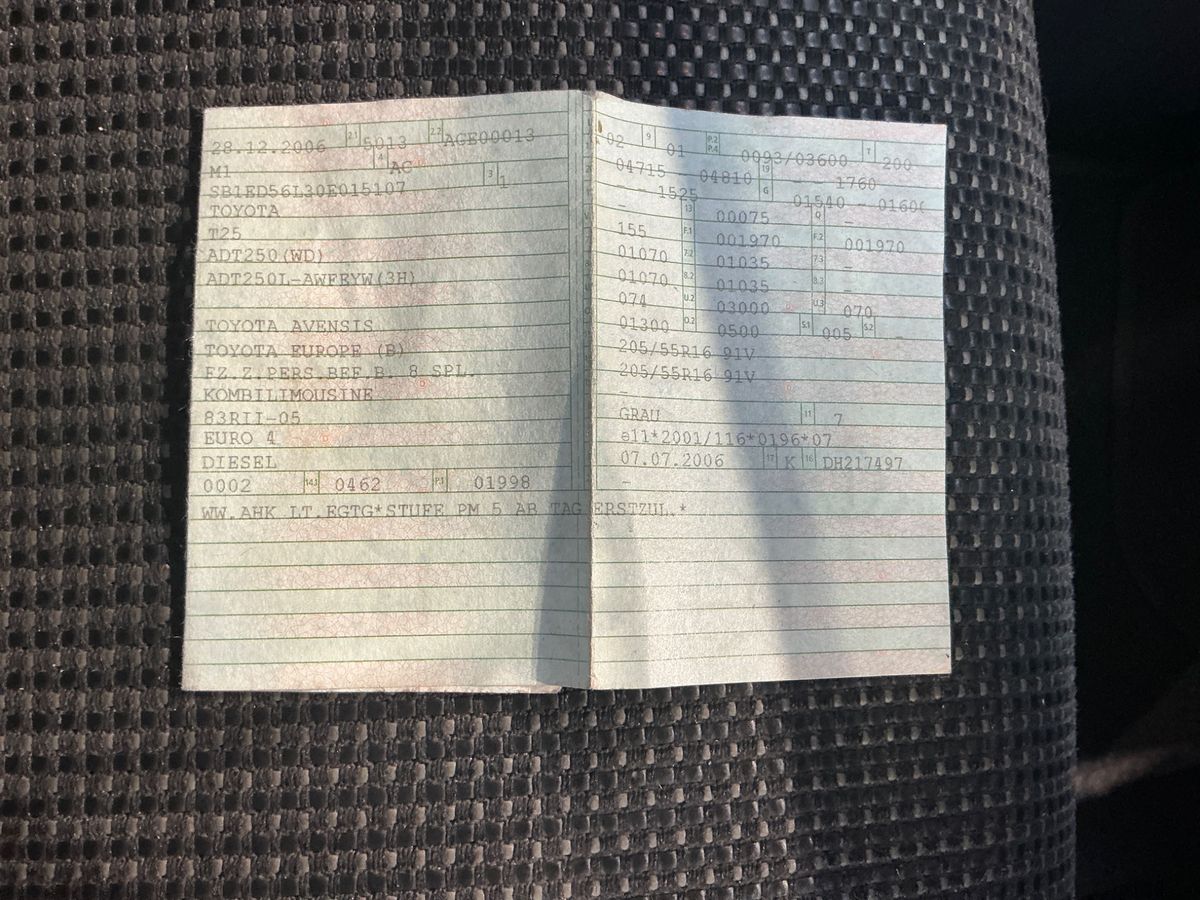 28.12.2006 2.1 5013 2.2 AGE00013
M1 4 AC
SB1ED56L30E015107 3 1
TOYOTA
T25
ADT250(WD)
ADT250L-AWFRYW(3H)
TOYOTA AVENSIS
TOYOTA EUROPE (B)
FZ.Z.PERS.BEF.B. 8 SPL.
KOMBILIMOUSINE
83RII-05
EURO 4
DIESEL
0002 14.1 0462 P.1 01998
WW.AHK LT.EGTG*STUFE PM 5 AB TAG ERSTZUL.*
02 9 01 P.2 P.4 0093/03600 T 200
04715 04810 19 1760
- - 1525 G 01540 - 0160
- 13 00075 Q -
155 F.1 001970 F.2 001970
01070 7.2 01035 7.3 -
01070 8.2 01035 8.3 -
074 U.2 03000 U.3 070
01300 O.2 0500 S.1 005 S.2 -
205/55R16 91V
205/55R16 91V
-
GRAU 11 7
e11*2001/116*0196*07
07.07.2006 17 K 16 DH217497
-